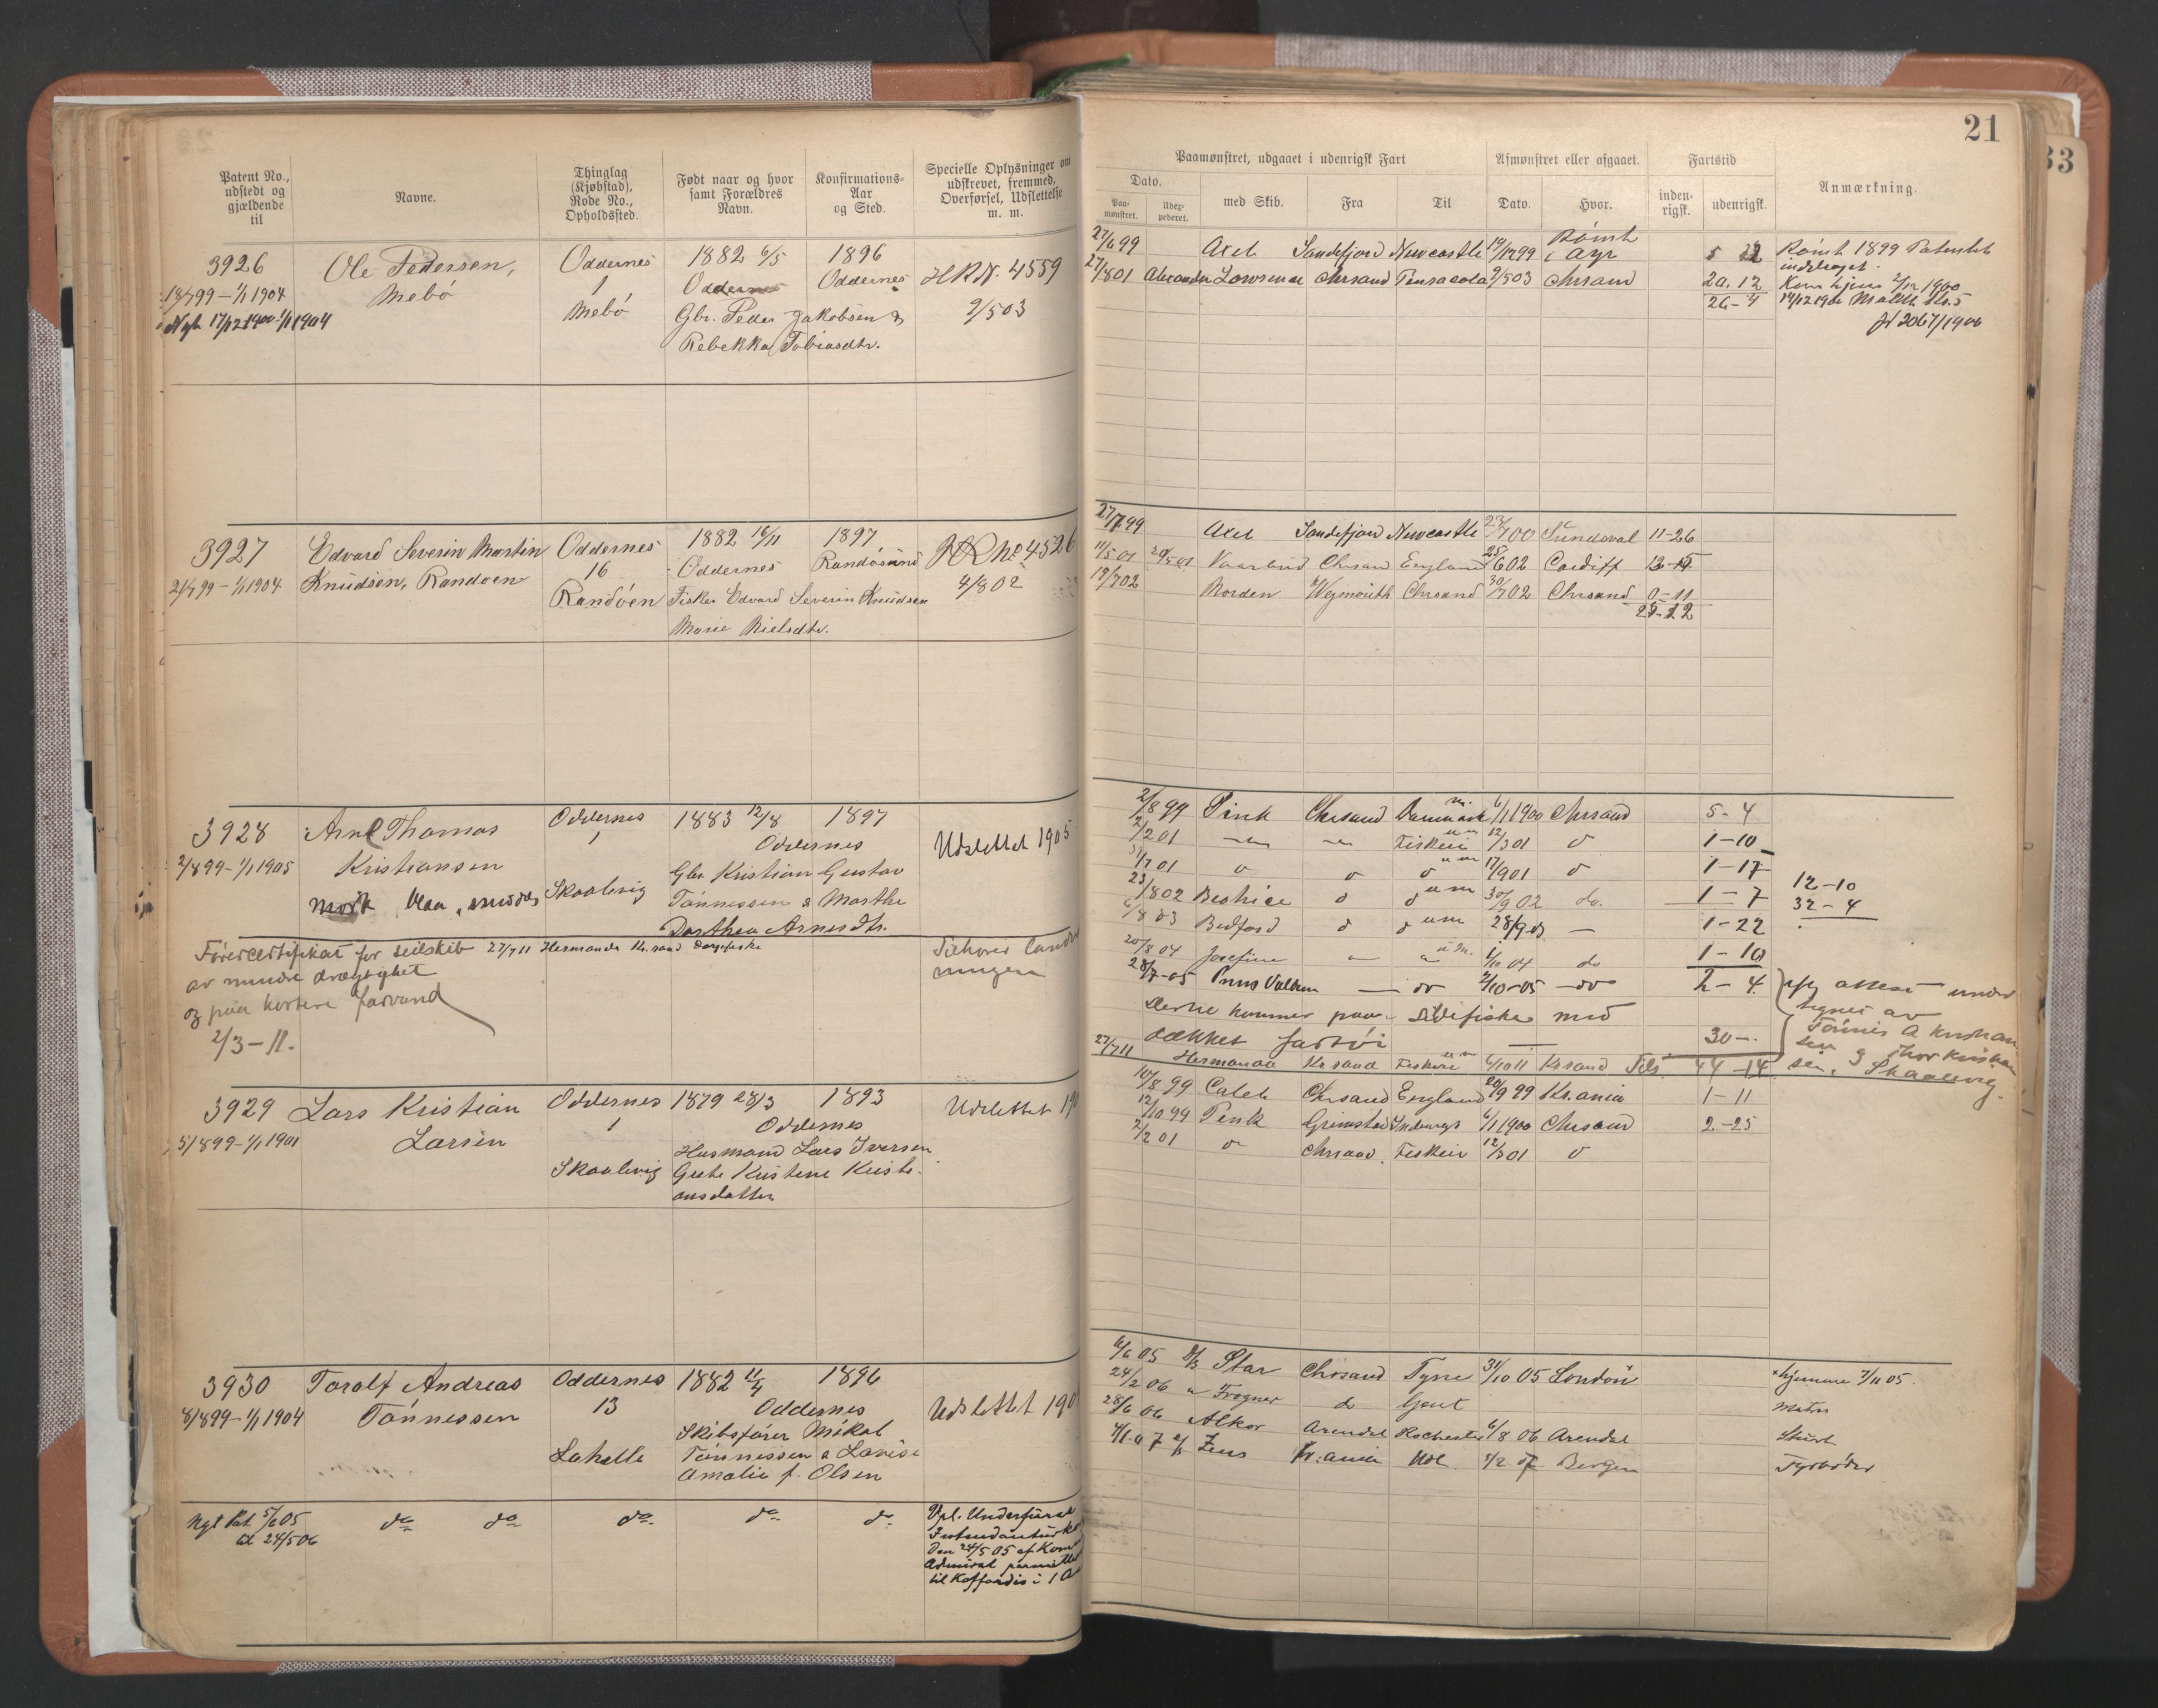 21
33
Patent No., udstedt og gjældende til
Navne.
Thinglag (Kjøbstad), Rode No., Opholdssted.
Født naar og hvor samt Forældres Navn.
Konfirmations-Aar og Sted.
Specielle Oplysninger om udskrevet, fremmed, Overførsel, Udslettelse m. m.
Paamønstret, udgaaet i udenrigsk Fart
Afmønstret eller afgaaet.
Fartstid
Anmærkning.
Dato.
Paamønstret.
med Skib.
Fra
Til
Dato.
Hvor.
indenrigsk.
udenrigsk.
3926
Ole Pedersen,
Mebö
18/7 99 – 1/1 1904
Nyt 17/12 1900 – 1/1 1904
Oddernes
1
Mebö
1882 6/5
Oddernes
Gbr. Peder Jakobsen &
Rebekka Tobiasdtr.
1896
Oddernes
HRN. 4559
9/5 03
27/6 99 Axel Sandefjord Newcastle 19/12 99 Römt i Ayr
27/8 01 Alexander Lawrence Chrsand Pensacola 9/5 03 Chrsand 20.12
26-4
Römt 1899 Patentet
inddraget.
Kom hjem 2/12 1900
Jr 2067/1900
3927
Edvard Severin Martin
Knudsen, Randöen
21/7 99 – 1/1 1904
Oddernes
16
Randöen
1882 16/11
Oddernes
Fisker Edvard Severin Knudsen
Marie Nielsdtr.
1897
Randösund
HR No 4526
4/8 02
27/7 99 Axel Sandefjord Newcastle 23/7 00 Sundsval 11-26
11/5 01 20/5 01 Vaarbud Chrsan England 25/6 02 Cardiff
19/7 02 Norden Weymouth Chrsand 30/7 02 Chrsand 0-11
25-22
3928
Arne Thomas
Kristiansen
2/8 99 – 1/1 1905
Mørk, blaa, middels
Oddernes
1
Skaalevig
1883 12/8
Oddernes
Gbr. Kristian Gustav
Tönnessen & Marthe
Dorthea Arnesdtr.
1897
Udslettet 1905
Förercertifikat for seilskib 27/7 11 Hermanda Kr.sand Dorgefiske
av mindre drægtighet
og paa kortere farvand
2/3-11.
Tilhører landv
ningen
2/8 99 Pink Chrsand Danmark 6/1 1900 Chrsand 5-4
2/2 01 Fiskeri 12/3 01 1-10
5/7 01 17/9 01 1-17
23/8 02 Beatrice 30/9 02 do. 1-7
6/8 03 Bedford 28/9 03 1-22
20/8 04 Josefine 1/10 04 do 1-10
28/7-05 Prins Valdem 2/10-05 2-4
12-10
32-4
Derue kommer paa sildefiske med
dækket fartöi 30-.
27/7 11 Hermanda Krsand Fiskeri 6/10 11 Krsand Tils. 44-14
ifg attest under
tegnet av
Tönnes A Kristian
sen & Thor Kristian
sen, Skaalevig.
3929
Lars Kristian
Larsen
5/8 99 – 1/1 1901
Oddernes
1
Skaalevig
1879 28/3
Oddernes
Husmand Lars Iversen
Grete Kristene Kristi-
ansdatter
1893
Udslettet 190
10/8 99 Caleb Chrsand England 20/9 99 Kr.ania 1-11
12/10 99 Pink Grimstad Indbergt 6/1 1900 Chrsand 2-25
2/2 01 Chrsand Fiskeri 12/3 01
3930
Toralf Andreas
Tönnessen
8/8 99 – 1/1 1904
Oddernes
13
Lahelle
1882 11/4
Oddernes
Skibsförer Mikal
Tönnessen & Lovise
Amalie f. Olsen
1896
Udslettet 190
6/6 05 D/S Star Chrsand Tyne 31/10 05 London hjemme 7/11 05.
24/2 06 Frogner Gent Matr
28/6 06 Alkor Arendal Rochester 6/8 06 Arendal
4/1 07 Zeus Kr.ania Hul 4/2 07 Bergen Fyrböder
Nyt Pat 5/6 05
til 24/5 06
do. do. do. do. do.
Vpl. Underfurer
Intendantürko
Den 24/5 05 af Kom
Admiral permitt
til Koffardis i 1 A